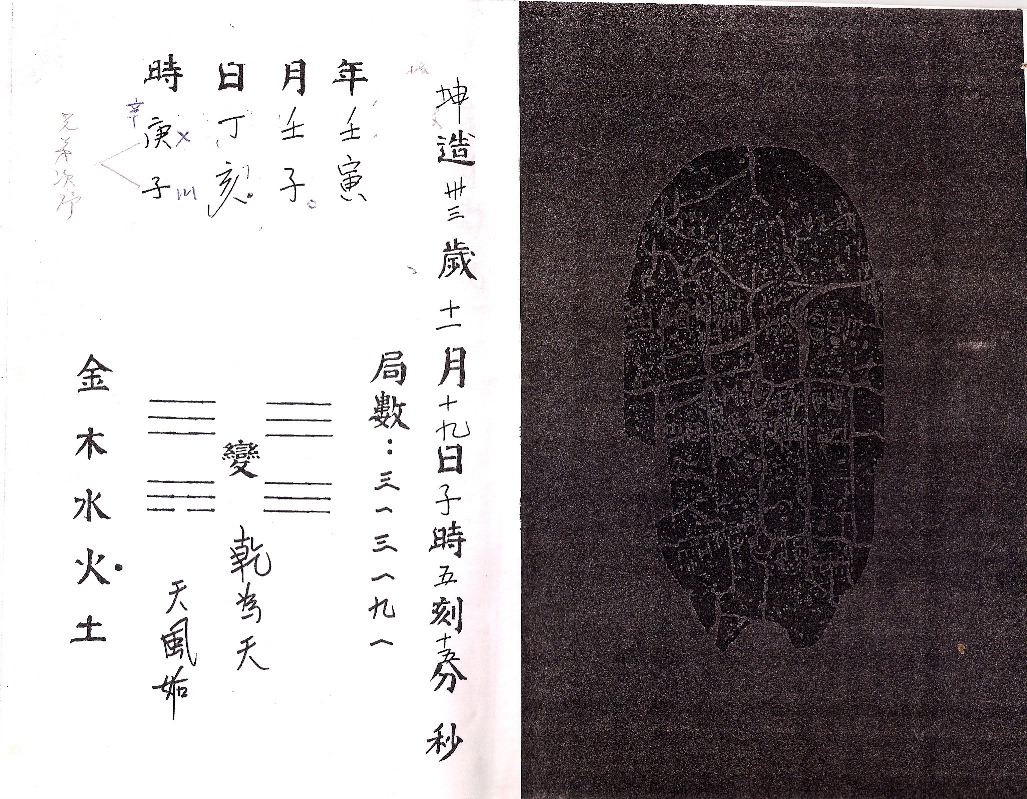 坤造卅三歲十一月十九日子時五刻十五分 秒
年 月 日 時
壬 壬 丁 庚
寅 子 亥 子
辛
兄弟次序
局數：三一三一九一
變
乾為天
天風姤
金木水火土